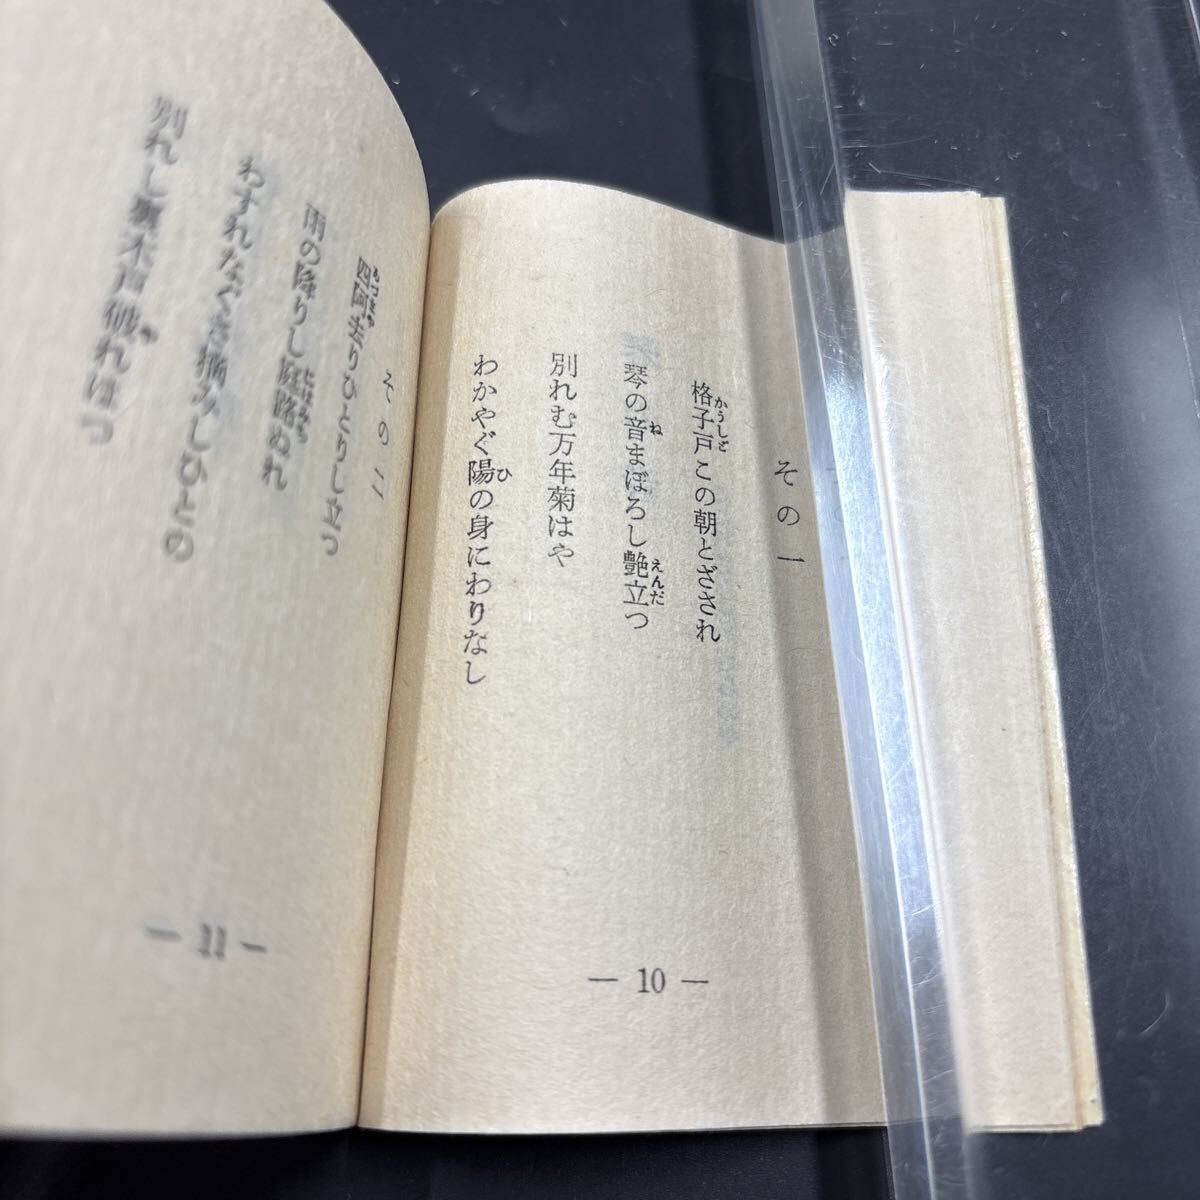 その一
格子戸この朝とざされ
かうしど
琴の音まぼろし艶立つ
ね
えんだ
別れむ万年菊はや
わかやぐ陽の身にわりなし
ひ
— 10 —
その二
四阿走りひとりし立つ
雨の降りし庭路ぬれ
わすれなぐさ摘みしひとの
別れし裏木戸破れはつ
— 11 —